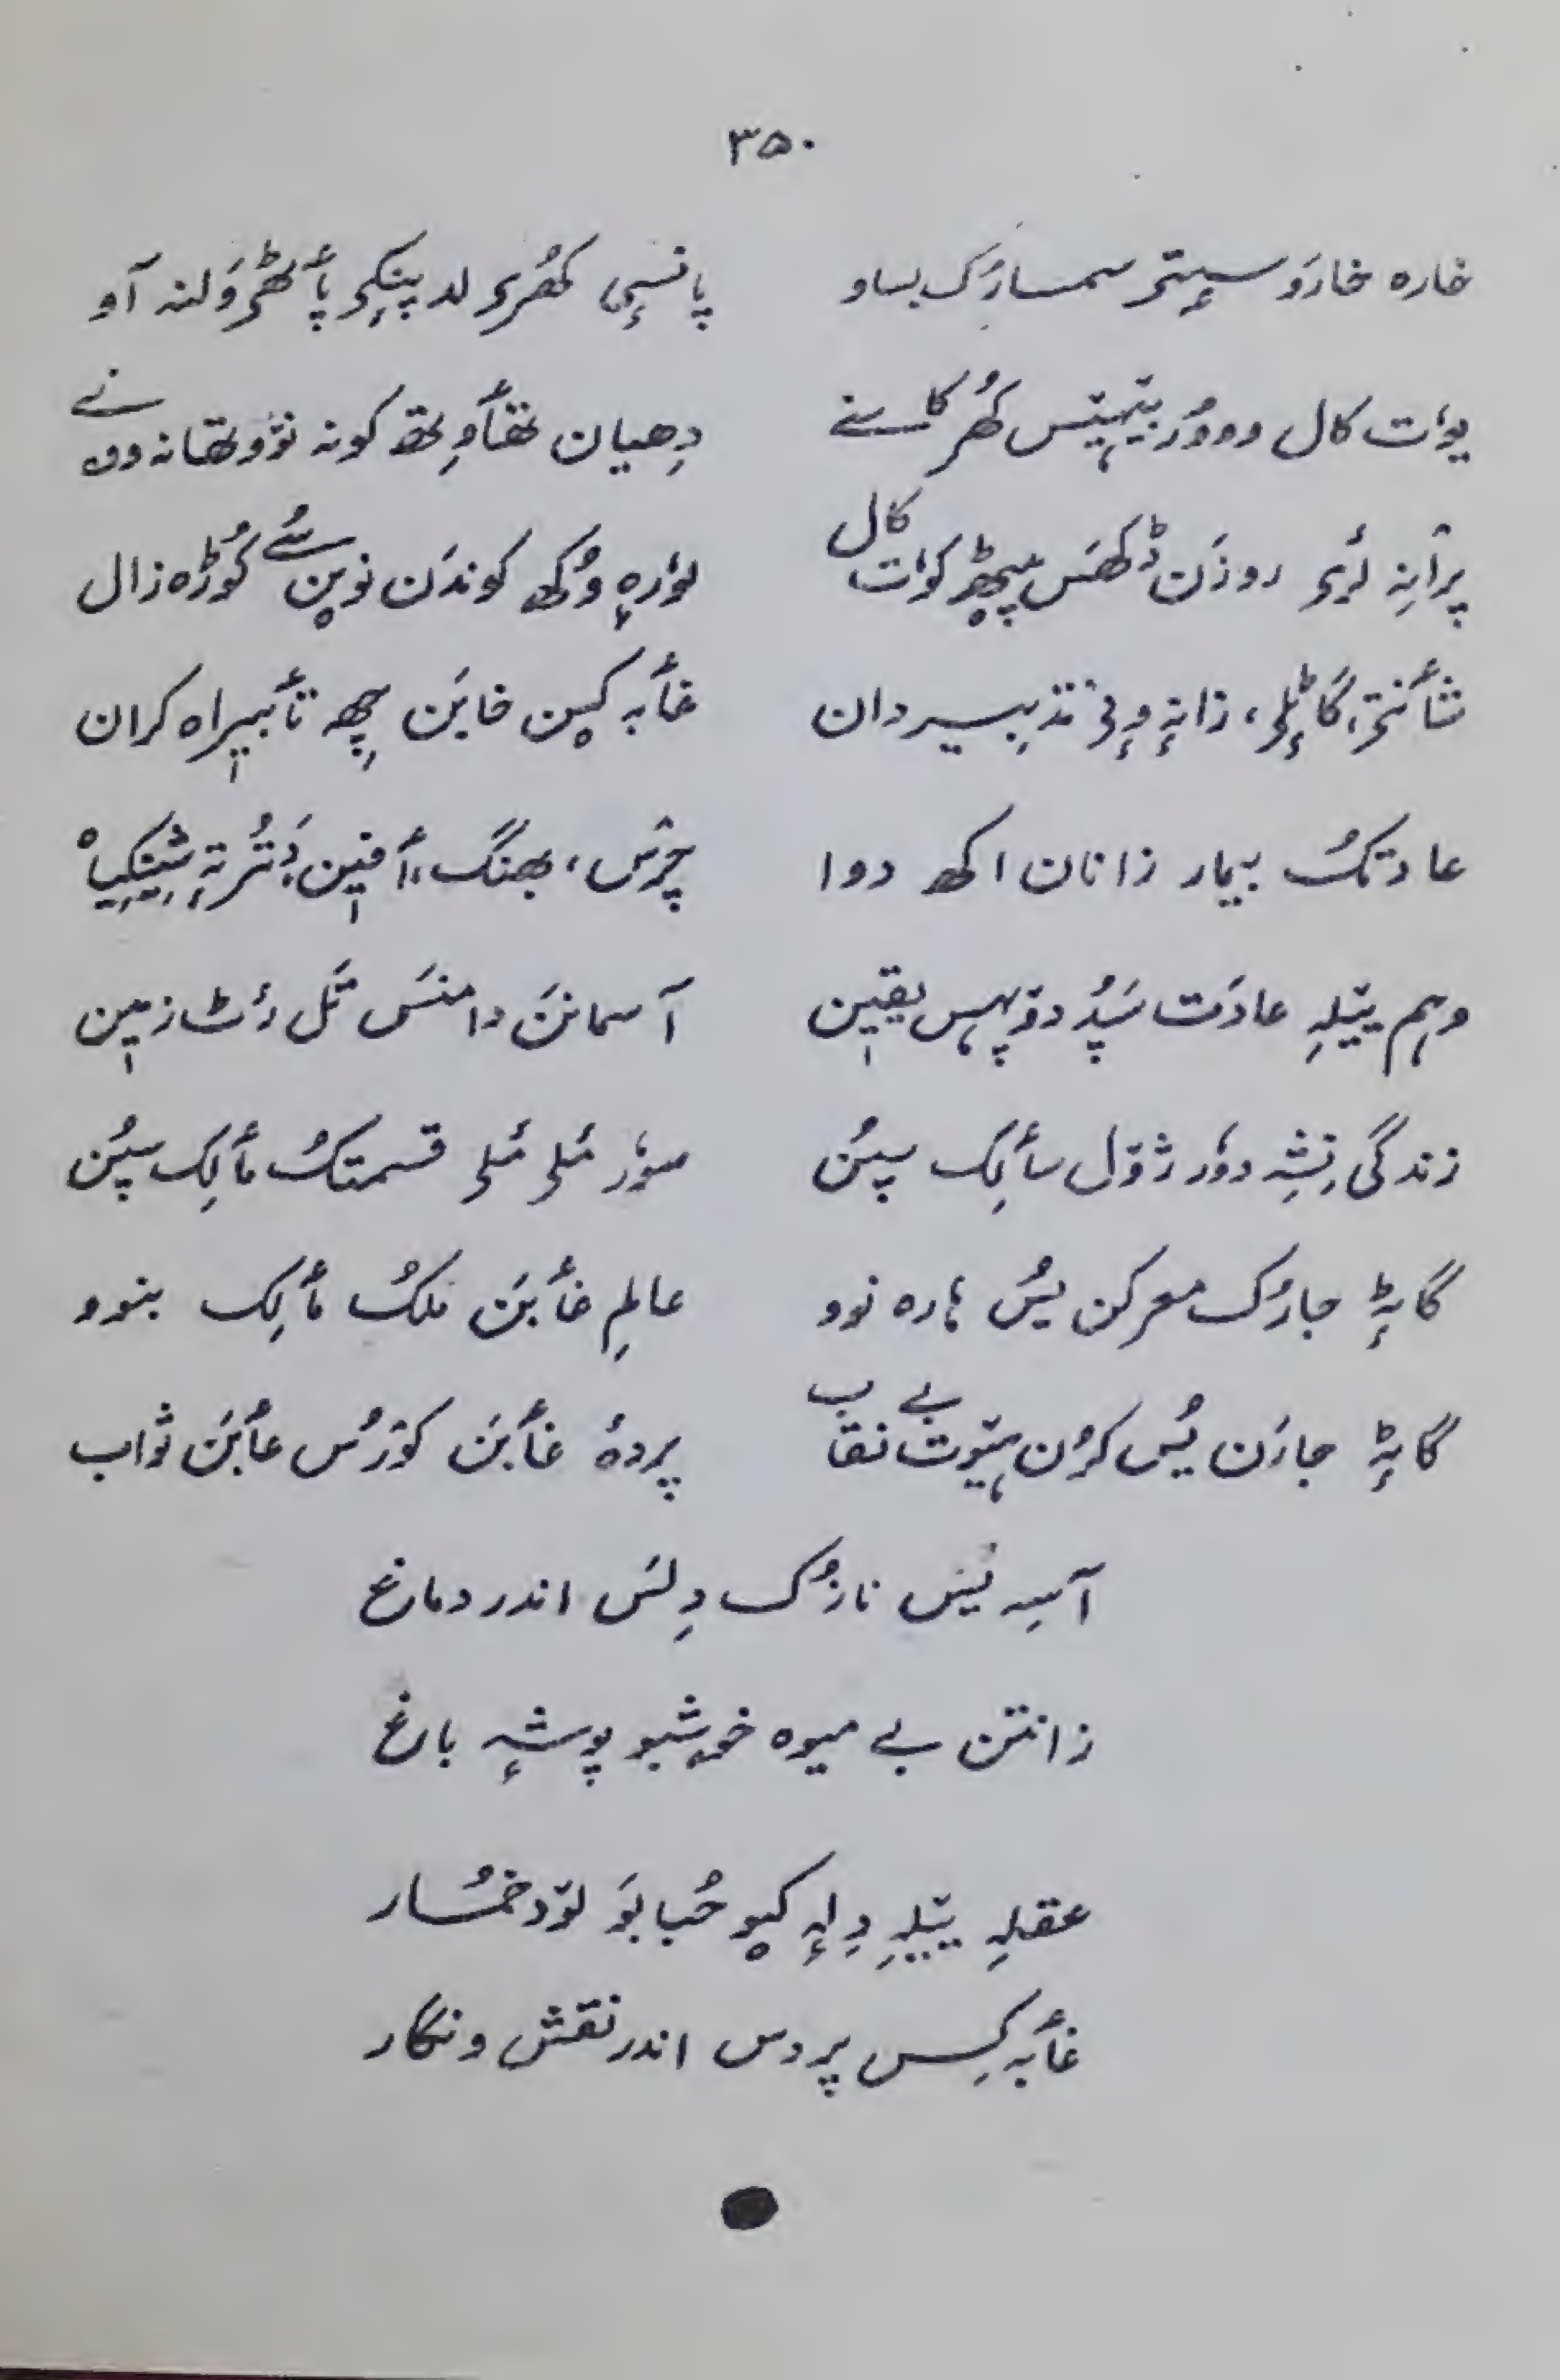 ۳۵۰
خارہ خارَو سٕتۍ سمسارَک بساو پانسٕی کھُرۍ لد پنکۍ پأٹھۍ وَلنہ آو
یوٗت کال ووورُ بیٚہیٚس کھُر کاسنے دِھیان تھأوِتھ کونہ نوٚو تھانہ وونے
پرٛانہِ لَرِ روزَن دُکھس پیٚٹھ کوٗت کال لوٗرِہ وُکھ کوندَن نوین سُے کوٗڑہ زال
شأنتی، گاٹٕلۍ، زانہٕ وٕنۍ تدبیر دان غأبہ کین خابَن چھِ تأبیراہ کران
عادتکُ بیمار زانان اکھ دوا چرٛس، بھنگ، أفیٖن، دَتُر تہٕ شیٖنکیاہ
وہم ییٚلہِ عادَت سَپُد دوٚپہس یقیٖن آسمانَن دامنَس تَل رٔٹ زمیٖن
زندگی نِشہِ دوٗر ژوٚل سألِک سپُن سوٗر مَلۍ مَلۍ قسمتکُ مألِک سپُن
گاٹہٕ جارُک معرکن یُس ہارہ نوو عالمِ غأبَن مُلکُ مألِک بنوو
گاٹہٕ جارَن یُس کرُن ہیوٚت بے نقاب پردۂ غأبَن کوٚرُس عأبَن ثواب
آسہِ یُس نازُک دِلَس اندر دماغ
زانتن بے میوہ خوشبو پوشہٕ باغ
عقلہِ ییٚلہِ دِلہٕ کیو حُبابَو لوٚد خمُار
غأبہ کِس پردس اندر نقش و نگار